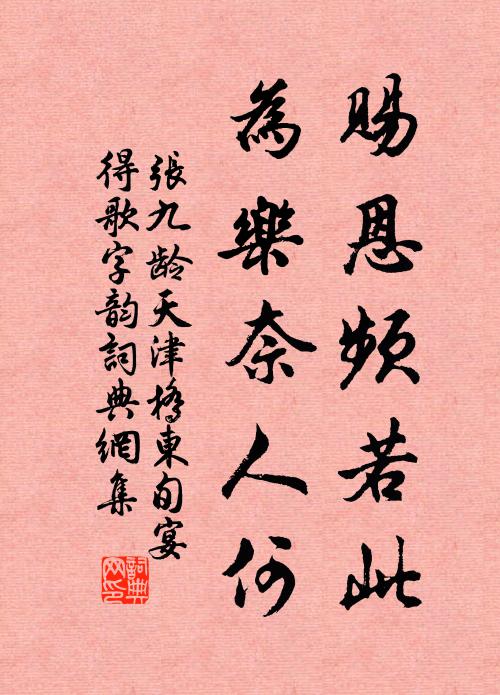 賜恩頻若此
為樂奈人何
張九龄天津橋東旬宴
得歌字韵詞典網集
詞典
网印